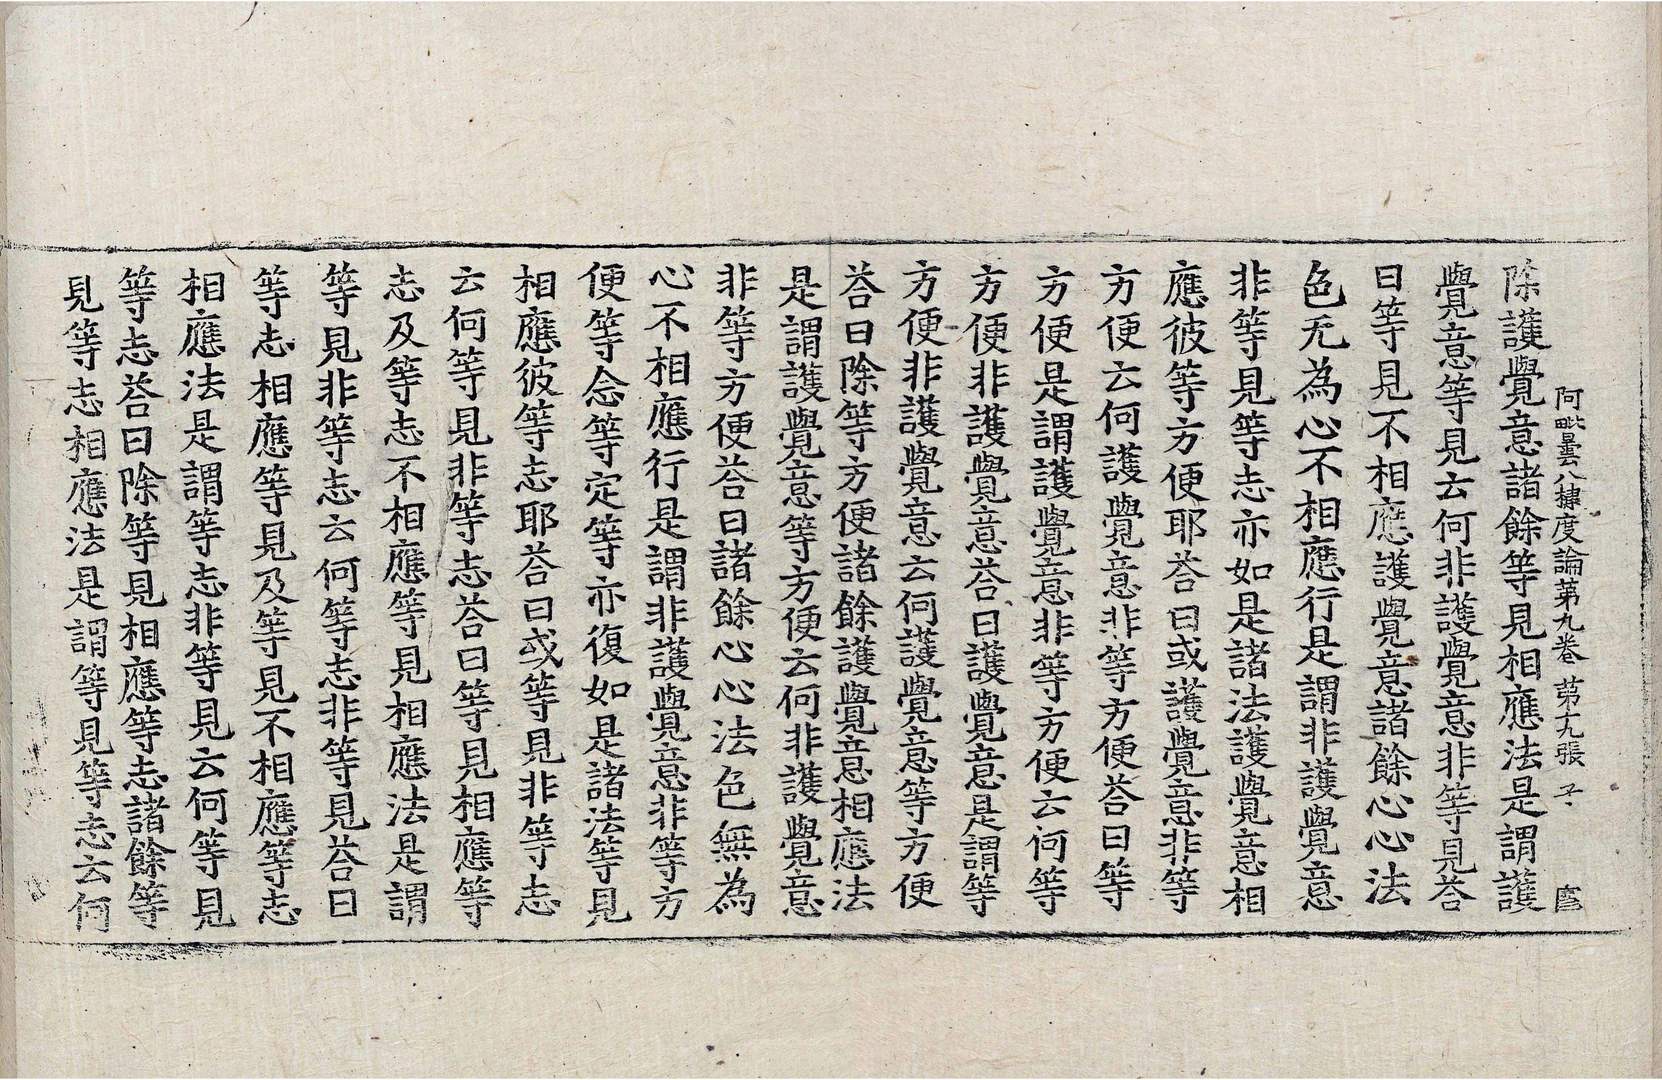 阿毗曇八揵度論第九卷 第十九張 子
除護覺意諸餘等見相應法是謂護
覺意等見云何非護覺意非等見荅
曰等見不相應護覺意諸餘心心法
色无為心不相應行是謂非護覺意
非等見等志亦如是諸法護覺意相
應彼等方便耶荅曰或護覺意非等
方便云何護覺意非等方便荅曰等
方便是謂護覺意非等方便云何等
方便非護覺意荅曰護覺意是謂等
方便非護覺意云何護覺意等方便
荅曰除等方便諸餘護覺意相應法
是謂護覺意等方便云何非護覺意
非等方便荅曰諸餘心心法色無為
心不相應行是謂非護覺意非等方
便等念等定等亦復如是諸法等見
相應彼等志耶荅曰或等見非等志
云何等見非等志荅曰等見相應等
志及等志不相應等見相應法是謂
等見非等志云何等志非等見荅曰
等志相應等見及等見不相應等志
相應法是謂等志非等見云何等見
等志荅曰除等見相應等志諸餘等
見等志相應法是謂等見等志云何